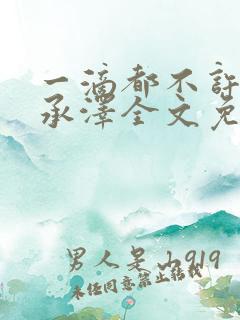 一滴都不许
承泽全文免
男人是山919
未经同意禁止转载